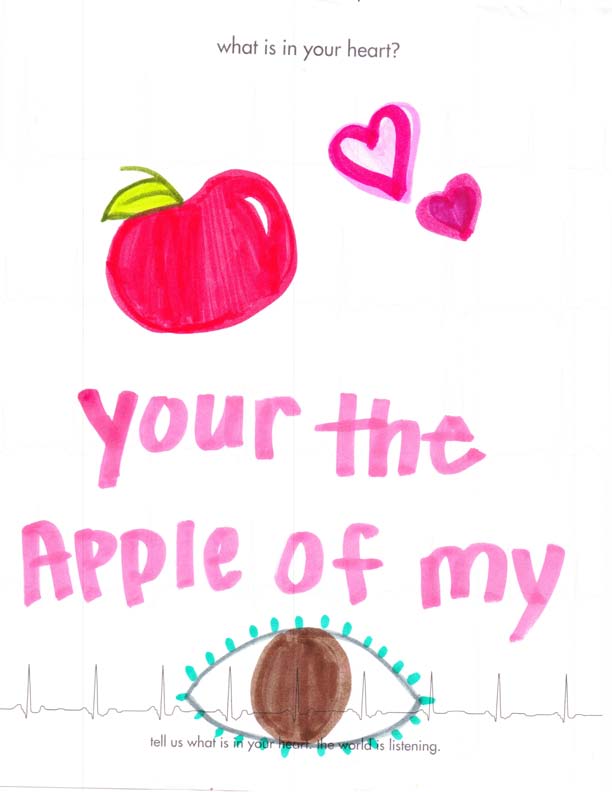 what is in your heart?
your the
Apple of my
tell us what is in your heart. the world is listening.